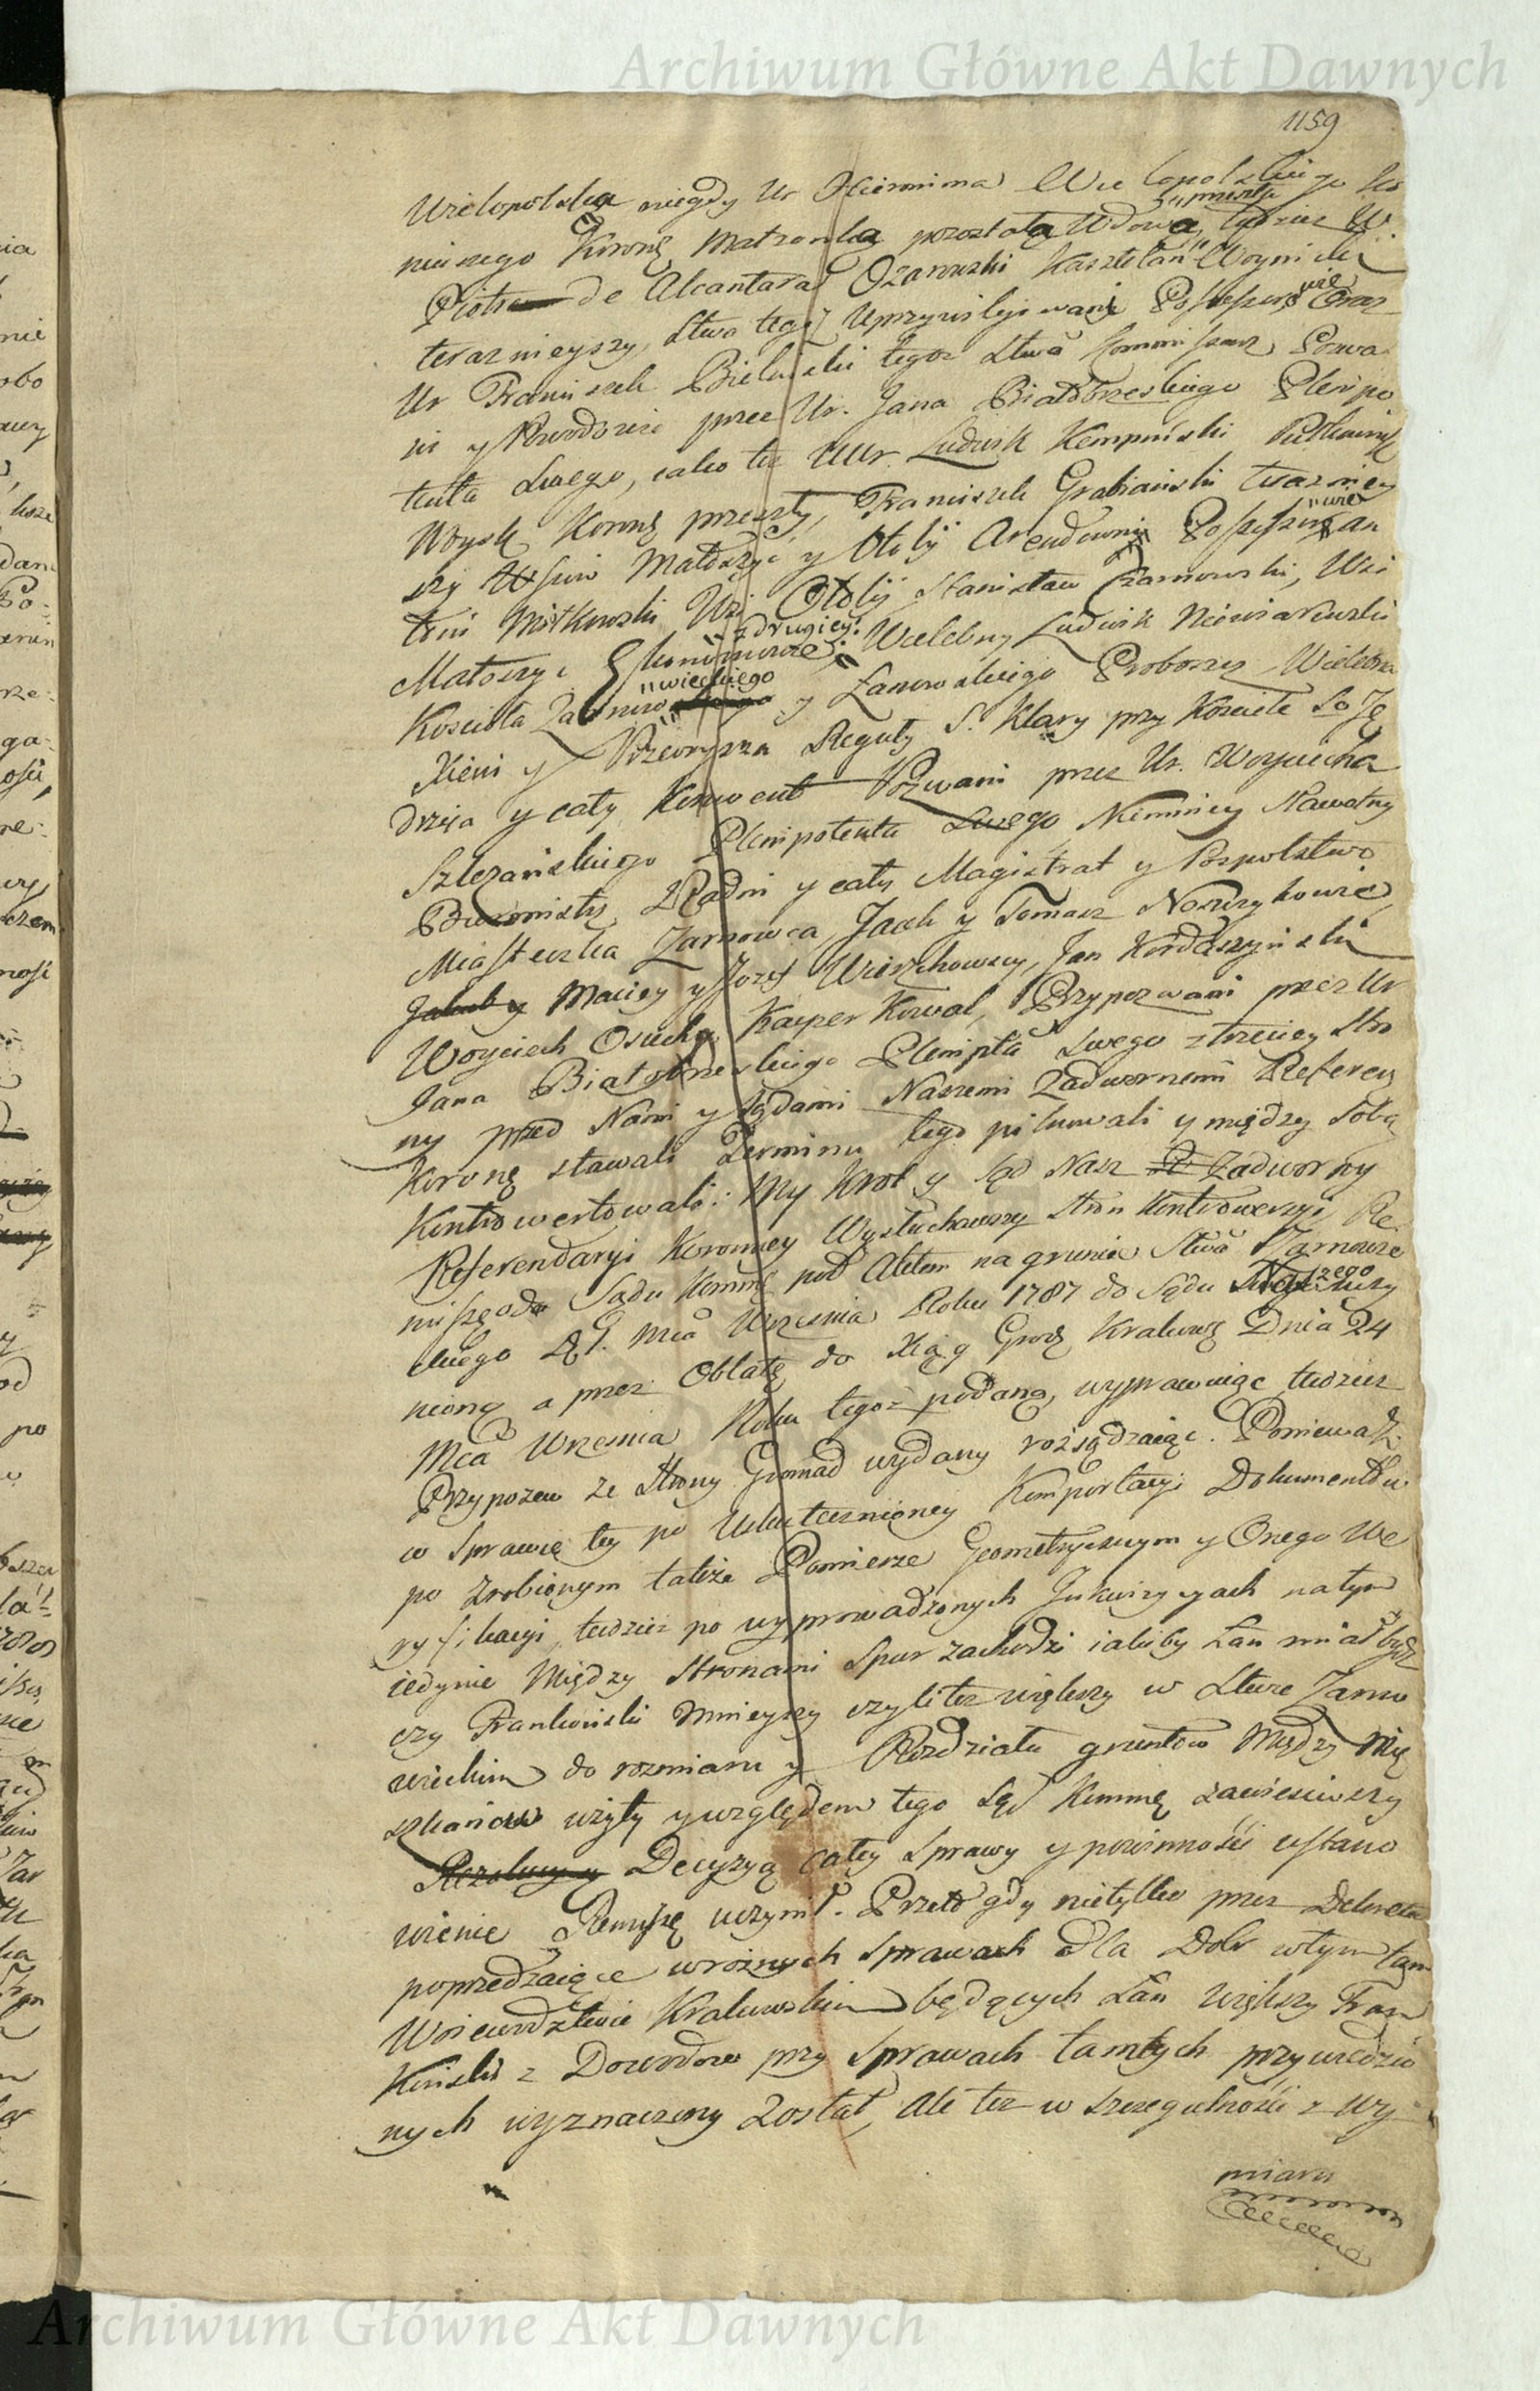 Archiwum Główne Akt Dawnych
1159
Wielopolska niegdy Ur Hieronima Wielopolskiego Ko
niuszego Koronę Małżonka pozostała Wdowa, tudzież W.
Piotr de Alcantara Ożarowski Kasztelan Woynicki
teraznieyszy, Stwa tegoż Uprzywilejowani Possessorowie Oraz
Ur Franciszek Bieliński tegoż Stwa Kommissarz Powo
ni y Powodowie przez Ur. Jana Białobrzeskiego Plenipo
tenta Swego, iako też UUr Ludwik Kempiński Pułkownik
Woysk Koronę przeszły, Franciszek Grabiański terazniey
szy Wsiów Małoszyc y Otoły Arendowni Possessorowie an
toni Mitkowski Wsi Otoły, Stanisław Czarnowski, Wsi
Małoszyc Ekonomowie z drugiey: Wielebny Ludwik Niewiarowski
Kościoła Żarnowieckiego y Łanowskiego Proboszcz Wielebna
Xieni y Przeorysza Reguły S. Klary przy Kościele So Ję
drzeja y cały Konwent Pozwani przez Ur. Woyciecha
Szlezańskiego Plenipotenta Swego, Niemniey Sławetny
Burmistrz, Radni y cały Magistrat y Pospolstwo
Miasteczka Żarnowca, Jacek y Tomasz Noszykowie,
Jakub y Maciey y Jozef Wierzchowscy, Jan Kordaszyński
Woyciech Osucha, Kacper Kowal, Przypozwani przez Ur
Jana Białobrzeskiego Plenipta Swego z trzeciey Stro
ny przed Nami y Sądami Naszemi Zadwornemi Referen
Koronę stawali Terminu tego pilnowali y między Sobą
Kontrowertowali: My Krol y Sąd Nasz Zadworny
Referendaryi Koronney Wysłuchawszy Stron Kontrowersyi, Re
missę od Sądu Kommę pod Aktem na gruncie Stwa Żarnowie
ckiego D. 1. Mca Września Roku 1787 do Sądu Naszego uczy
nioną a przez Oblatę do Xiąg Grodz Krakowę Dnia 24
Mca Września Roku tegoż podaną, wyprawuiąc, tudzież
Przypozew ze Strony Gromad wydany rozsądzaiąc. Ponieważ
w Sprawie tey po Uskutecznioney Komportacyi Dokumentów
po zrobionym także Pomierze Geometrycznym y Onego We
ryfikacyi, tudzież po wyprowadzonych Inkwizycyach na tym
iedynie Między Stronami Spor zachodzi iakiby Łan miał być
czy Frankoński Mnieyszy czyli też większy w Stwie Żarno
wieckim do rozmiaru y Rozdziału gruntów Między Mie
szkańców użyty y względem tego Sąd Kommę zawiesiwszy
Rezolucyą Decyzyą całey Sprawy y powinności ustano
wienie Remissę uczynił. Przeto gdy nietylko przez Dekreta
poprzedzaiące w rożnych Sprawach dla Dobr w tym tam
Woiewodztwie Krakowskim będących Łan Większy Fran
Koński z Dowodów przy Sprawach tamtych przywiedzio
nych wyznaczony Został, Ale też w Szczegulności z Wy
miaru
Archiwum Główne Akt Dawnych